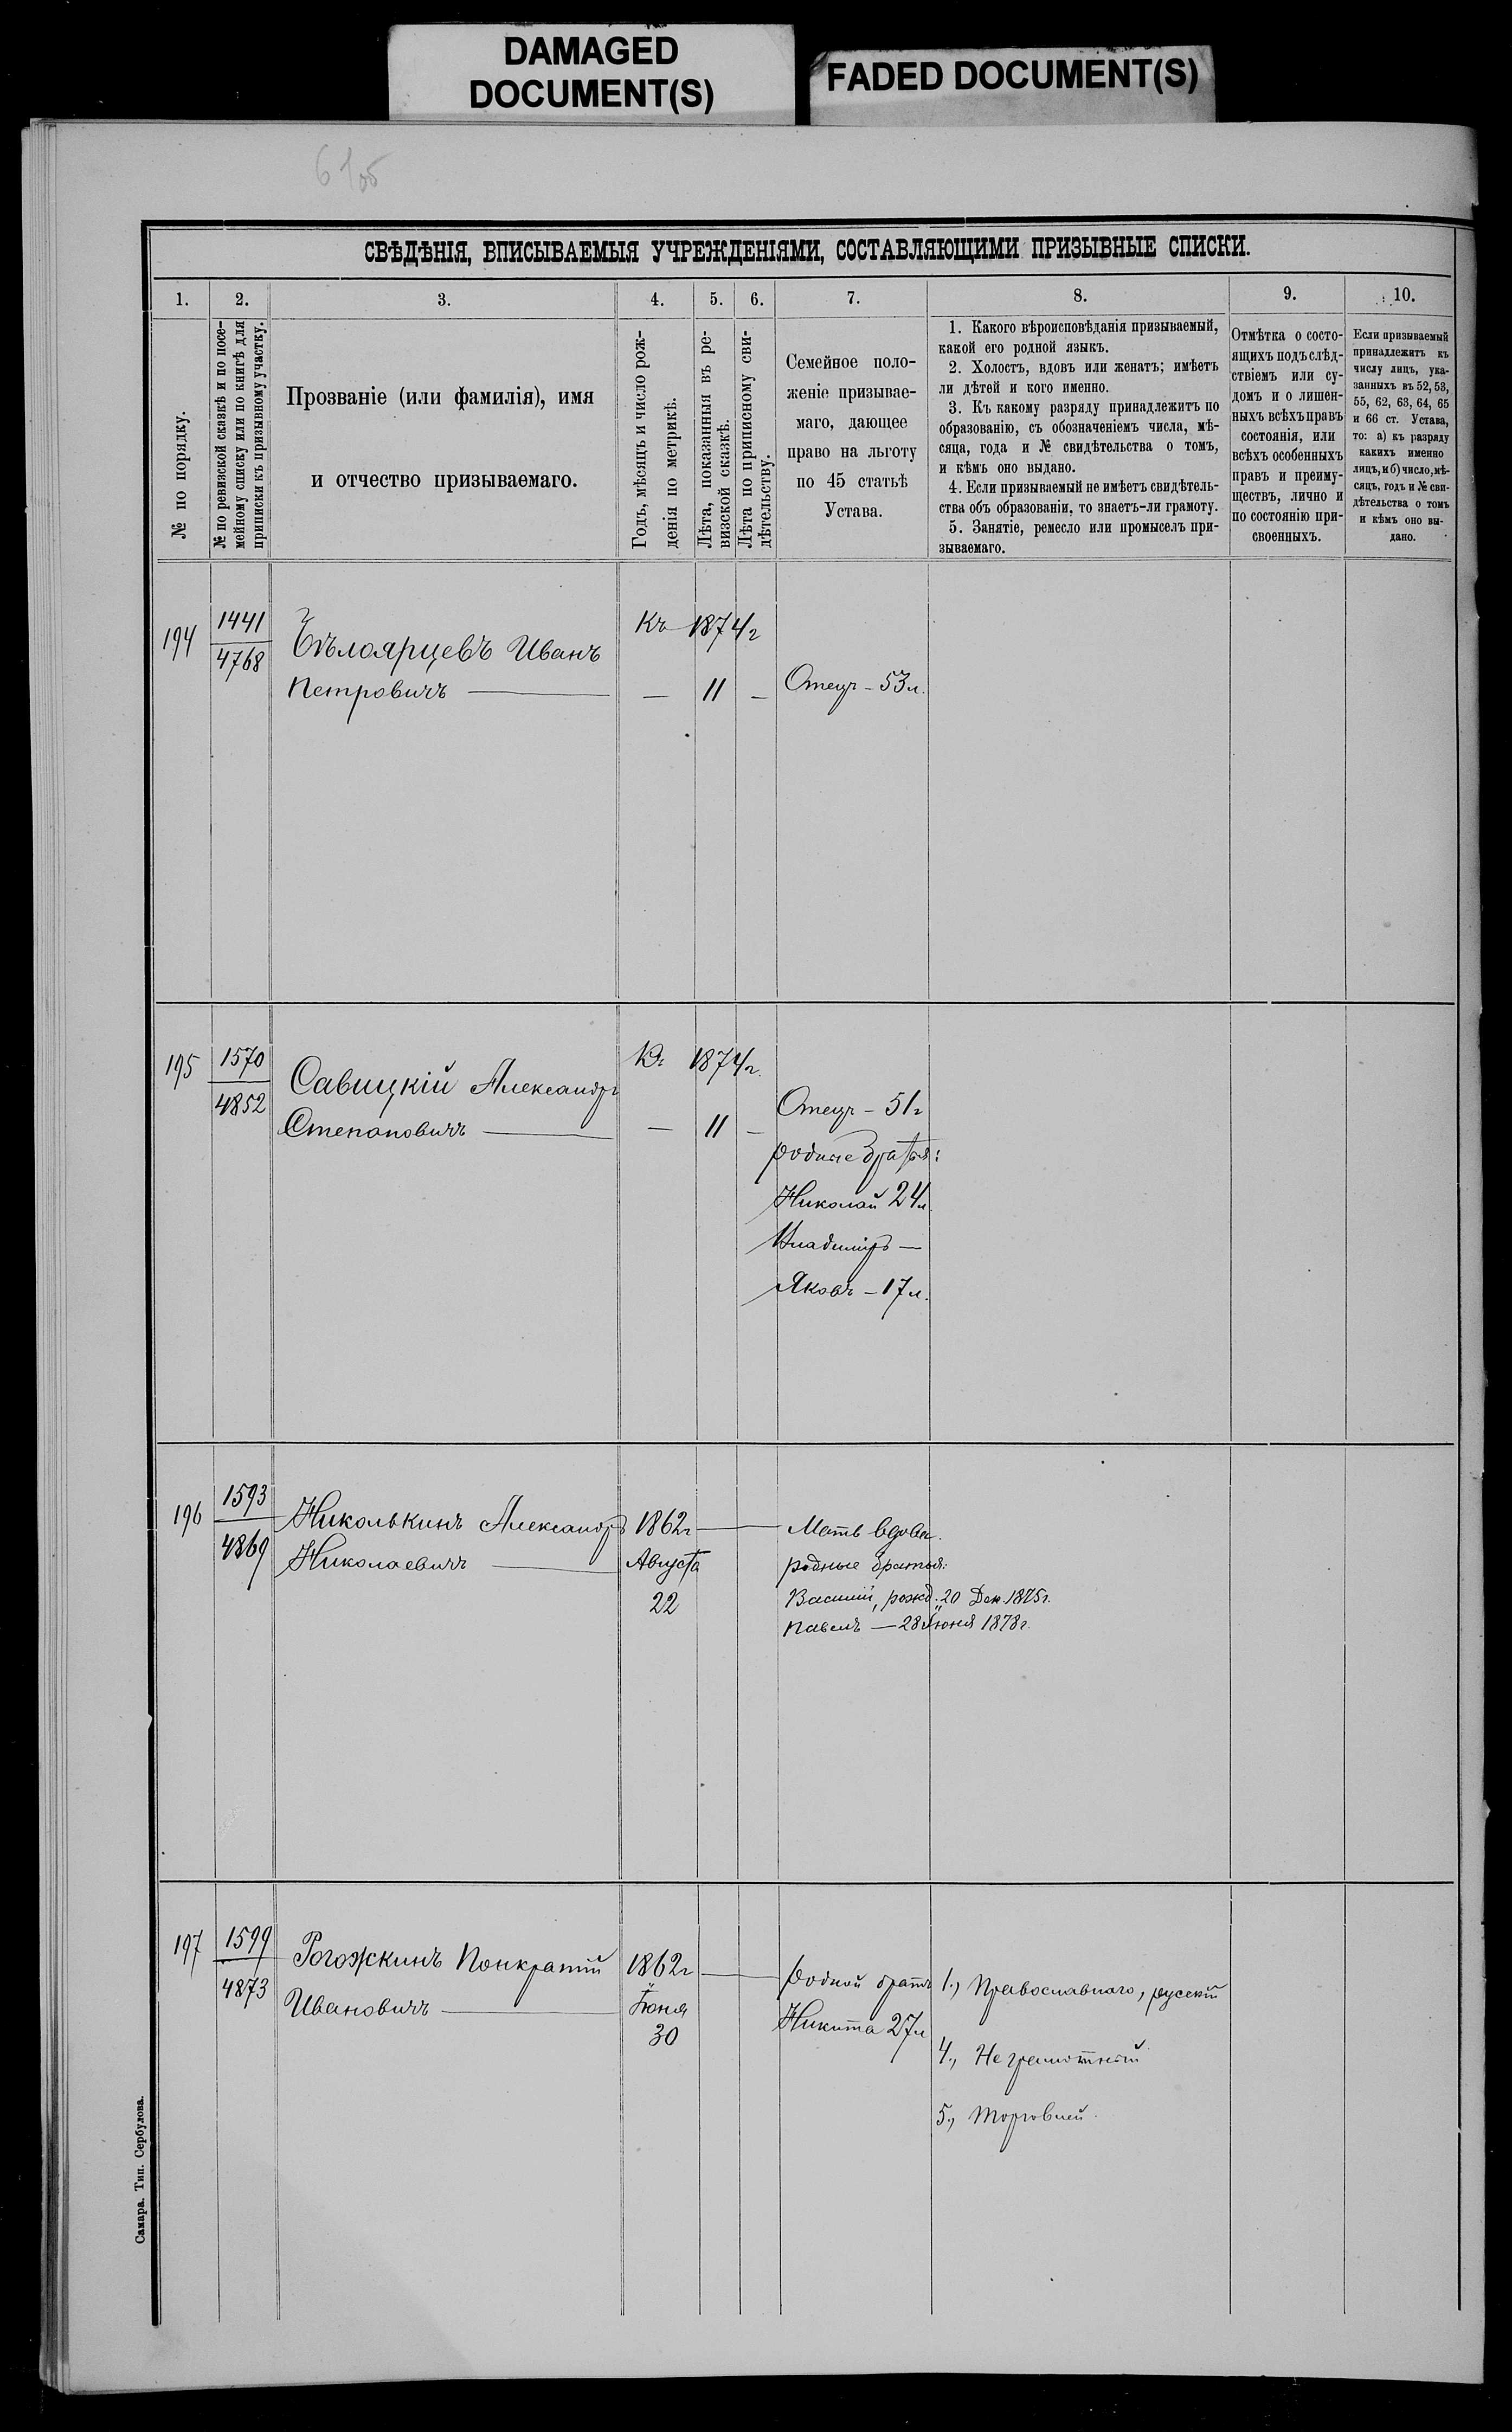 DAMAGED
DOCUMENT(S)
FADED DOCUMENT(S)
61об
СВѢДѢНІЯ, ВПИСЫВАЕМЫЯ УЧРЕЖДЕНІЯМИ, СОСТАВЛЯЮЩИМИ ПРИЗЫВНЫЕ СПИСКИ.
1.
2.
3.
4.
5.
6.
7.
8.
9.
10.
№ по порядку.
№ по ревизской сказкѣ и по посе-
мейному списку или по книгѣ для
приписки къ призывному участку.
Прозваніе (или фамилія), имя
и отчество призываемаго.
Годъ, мѣсяцъ и число рож-
денія по метрикѣ.
Лѣта, показанныя въ ре-
визской сказкѣ.
Лѣта по приписному сви-
дѣтельству.
Семейное поло-
женіе призывае-
маго, дающее
право на льготу
по 45 статьѣ
Устава.
1. Какого вѣроисповѣданія призываемый,
какой его родной языкъ.
2. Холостъ, вдовъ или женатъ; имѣетъ
ли дѣтей и кого именно.
3. Къ какому разряду принадлежитъ по
образованію, съ обозначеніемъ числа, мѣ-
сяца, года и № свидѣтельства о томъ,
и кѣмъ оно выдано.
4. Если призываемый не имѣетъ свидѣтель-
ства объ образованіи, то знаетъ-ли грамоту.
5. Занятіе, ремесло или промыселъ при-
зываемаго.
Отмѣтка о состо-
ящихъ подъ слѣд-
ствіемъ или су-
домъ и о лишен-
ныхъ всѣхъ правъ
состоянія, или
всѣхъ особенныхъ
правъ и преиму-
ществъ, лично и
по состоянію при-
своенныхъ.
Если призываемый
принадлежитъ къ
числу лицъ, ука-
занныхъ въ 52, 53,
55, 62, 63, 64, 65
и 66 ст. Устава,
то: а) къ разряду
какихъ именно
лицъ, и б) число, мѣ-
сяцъ, годъ и № сви-
дѣтельства о томъ
и кѣмъ оно вы-
дано.
194
1441
4768
Бѣлоярцевъ Иванъ
Петровичъ —
Къ 1874 г
— 11 —
Отецъ – 53 л.
195
1570
4852
Савицкій Александръ
Степановичъ —
Къ 1874 г.
— 11 —
Отецъ – 51 г
родные братья:
Николай 24 л.
Владиміръ —
Яковъ – 17 л.
196
1593
4869
Николькинъ Александръ
Николаевичъ —
1862 г —
Августа
22
Мать вдова.
родные братья:
Василій, рожд. 20 Дек. 1875 г.
Павелъ — 28 Іюня 1878 г.
197
1599
4873
Рогожкинъ Понкратій
Ивановичъ —
1862 г —
Іюня
30
родной братъ
Никита 27 л
1., Православнаго, русскій
4., Неграмотный
5., Торговлей.
Самара. Тип. Сербулова.